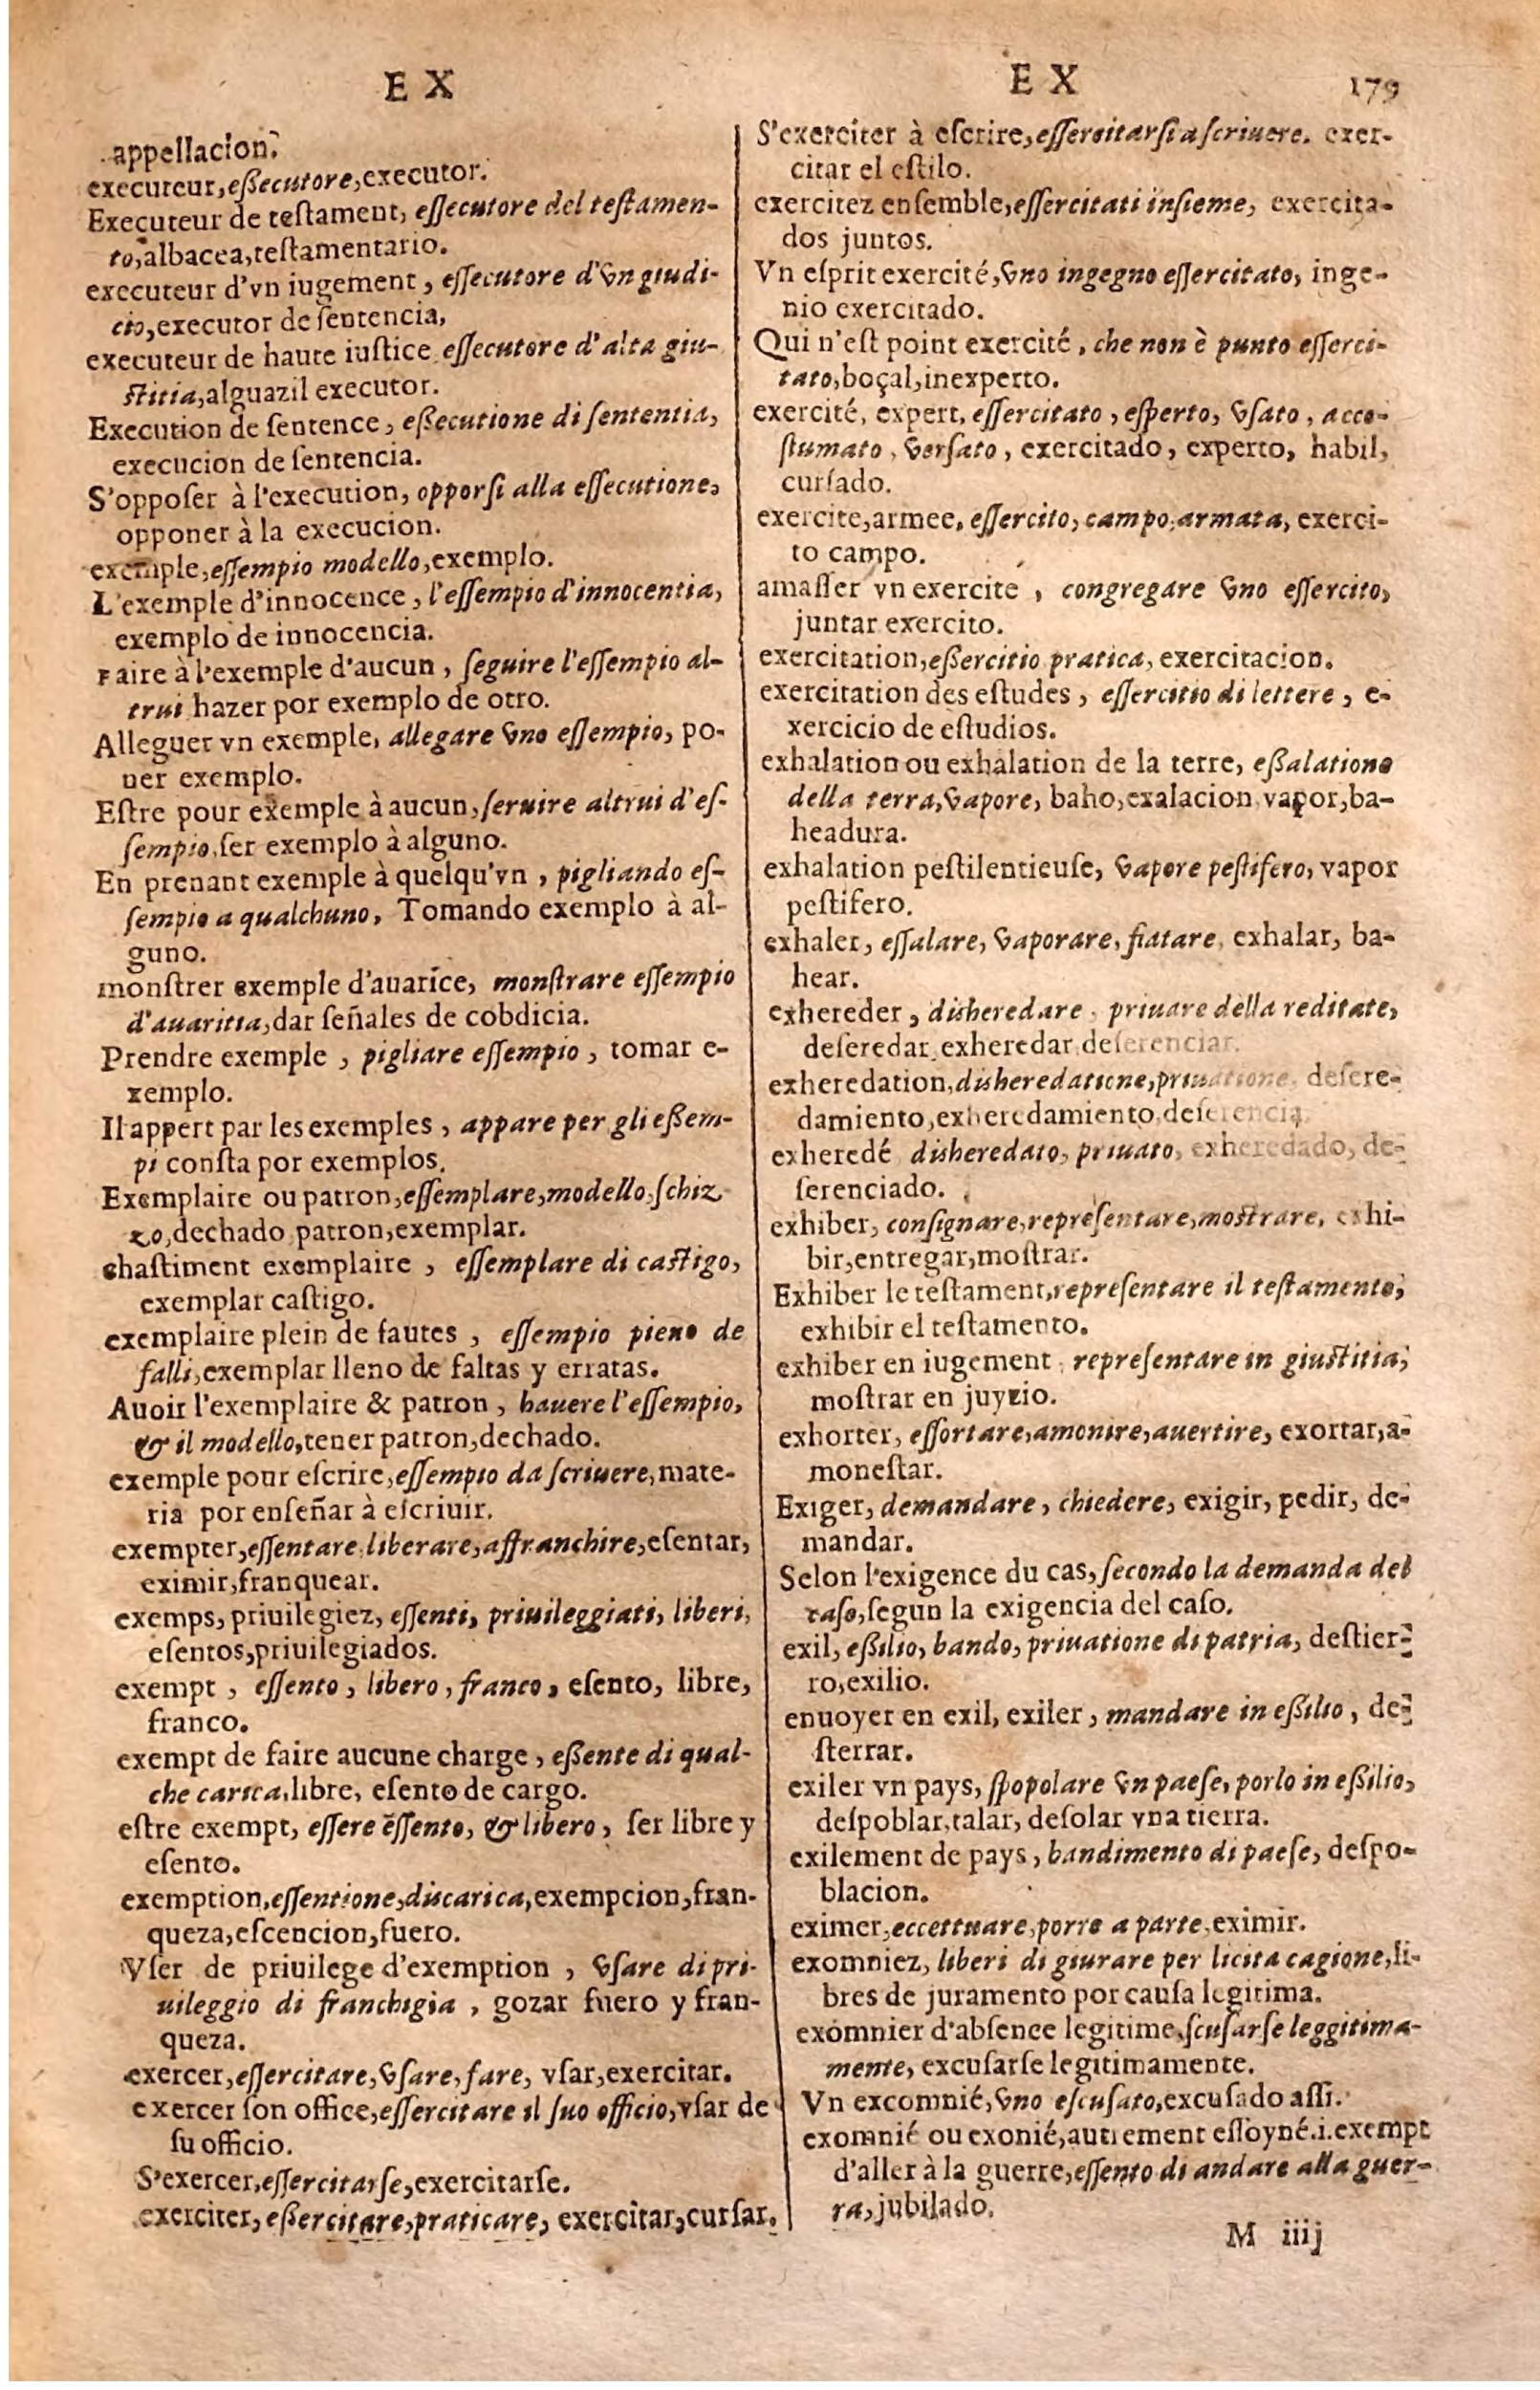 EX
appellacion.
executeur, eßecutore, executor.
Executeur de testament, eſſecutore del teſtamen-
to, albacea, teſtamentario.
executeur d'vn iugement, eſſecutore d'vn giudi-
cio, executor de ſentencia,
executeur de haute iuſtice eſſecutore d'alta giu-
ſtitia, alguazil executor.
Execution de ſentence, eßecutione di ſententia,
execucion de ſentencia.
S'oppoſer à l'execution, opporſi alla eſſecutione,
opponer à la execucion.
exemple, eſſempio modello, exemplo.
L'exemple d'innocence, l'eſſempio d'innocentia,
exemplo de innocencia.
Faire à l'exemple d'aucun, ſeguire l'eſſempio al-
trui hazer por exemplo de otro.
Alleguer vn exemple, allegare vno eſſempio, po-
ner exemplo.
Eſtre pour exemple à aucun, ſeruire altrui d'eſ-
ſempio, ſer exemplo à alguno.
En prenant exemple à quelqu'vn, pigliando eſ-
ſempio a qualchuno, Tomando exemplo à al-
guno.
monſtrer exemple d'auarice, monſtrare eſſempio
d'auaritia, dar ſeñales de cobdicia.
Prendre exemple, pigliare eſſempio, tomar e-
xemplo.
Il appert par les exemples, appare per gli eßem-
pi conſta por exemplos.
Exemplaire ou patron, eſſemplare, modello, ſchiz-
zo, dechado patron, exemplar.
chaſtiment exemplaire, eſſemplare di caſtigo,
exemplar caſtigo.
exemplaire plein de fautes, eſſempio pieno de
falli, exemplar lleno de faltas y erratas.
Auoir l'exemplaire & patron, hauere l'eſſempio,
& il modello, tener patron, dechado.
exemple pour eſcrire, eſſempio da ſcriuere, mate-
ria por enſeñar à eſcriuir.
exempter, eſſentare, liberare, affranchire, eſentar,
eximir, franquear.
exemps, priuilegiez, eſſenti, priuileggiati, liberi,
eſentos, priuilegiados.
exempt, eſſento, libero, franco, eſento, libre,
franco.
exempt de faire aucune charge, eßente di qual-
che carica, libre, eſento de cargo.
eſtre exempt, eſſere eſſento, & libero, ſer libre y
eſento.
exemption, eſſentione, discarica, exempcion, fran-
queza, eſcencion, fuero.
Vſer de priuilege d'exemption, vſare di pri-
uileggio di franchigia, gozar fuero y fran-
queza.
exercer, eſſercitare, vſare, fare, vſar, exercitar.
exercer ſon office, eſſercitare il ſuo officio, vſar de
ſu officio.
S'exercer, eſſercitarſe, exercitarſe.
exerciter, eßercitare, praticare, exercitar, curſar.
EX 179
S'exerciter à eſcrire, eſſercitarſi a ſcriuere. exer-
citar el eſtilo.
exercitez enſemble, eſſercitati inſieme, exercita-
dos juntos.
Vn eſprit exercité, vno ingegno eſſercitato, inge-
nio exercitado.
Qui n'eſt point exercité, che non è punto eſſerci-
tato, boçal, inexperto.
exercité, expert, eſſercitato, eſperto, vſato, acco-
ſtumato, verſato, exercitado, experto, habil,
curſado.
exercite, armee, eſſercito, campo, armata, exerci-
to campo.
amaſſer vn exercite, congregare vno eſſercito,
juntar exercito.
exercitation, eßercitio pratica, exercitacion.
exercitation des eſtudes, eſſercitio di lettere, e-
xercicio de eſtudios.
exhalation ou exhalation de la terre, eßalatione
della terra, vapore, baho, exalacion vapor, ba-
headura.
exhalation peſtilentieuſe, vapore peſtifero, vapor
peſtifero.
exhaler, eſſalare, vaporare, fiatare, exhalar, ba-
hear.
exhereder, disheredare, priuare della reditate,
deſeredar, exheredar deſerenciar.
exheredation, disheredatione, priuatione, deſere-
damiento, exheredamiento, deſerencia,
exheredé disheredato, priuato, exheredado, de-
ſerenciado.
exhiber, conſignare, repreſentare, moſtrare, exhi-
bir, entregar, moſtrar.
Exhiber le teſtament, repreſentare il teſtamento,
exhibir el teſtamento.
exhiber en iugement, repreſentare in giuſtitia,
moſtrar en juyzio.
exhorter, eſſortare, amonire, auertire, exortar, a-
moneſtar.
Exiger, demandare, chiedere, exigir, pedir, de-
mandar.
Selon l'exigence du cas, ſecondo la demanda del
caſo, ſegun la exigencia del caſo.
exil, eßilio, bando, priuatione di patria, deſtier-
ro, exilio.
enuoyer en exil, exiler, mandare in eßilio, de-
ſterrar.
exiler vn pays, ſpopolare vn paeſe, porlo in eßilio,
deſpoblar, talar, deſolar vna tierra.
exilement de pays, bandimento di paeſe, deſpo-
blacion.
eximer, eccettuare, porre a parte, eximir.
exomniez, liberi di giurare per licita cagione, li-
bres de juramento por cauſa legitima.
exomnier d'abſence legitime, ſcuſarſe leggitima-
mente, excuſarſe legitimamente.
Vn excomnié, vno eſcuſato, excuſado aſſi.
exomnié ou exonié, autrement eſſoyné .i. exempt
d'aller à la guerre, eſſento di andare alla guer-
ra, jubilado.
M iiij